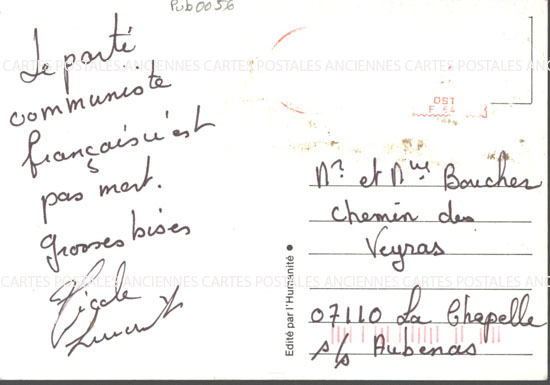 Pub0056
Le parti
communiste
français n'est
pas mort.
grosses bises
Nicole
CARTES POSTALES ANCIENNES CARTES POSTALES ANCIENNES CARTES POSTALES ANCIENNES
OST
Mr et Mme Boucher
Chemin des
Veyras
07110 La Chapelle
s/s Aubenas
Edité par l'Humanité
CARTES POSTALES ANCIENNES CARTES POSTALES ANCIENNES CARTES POSTALES ANCIENNES